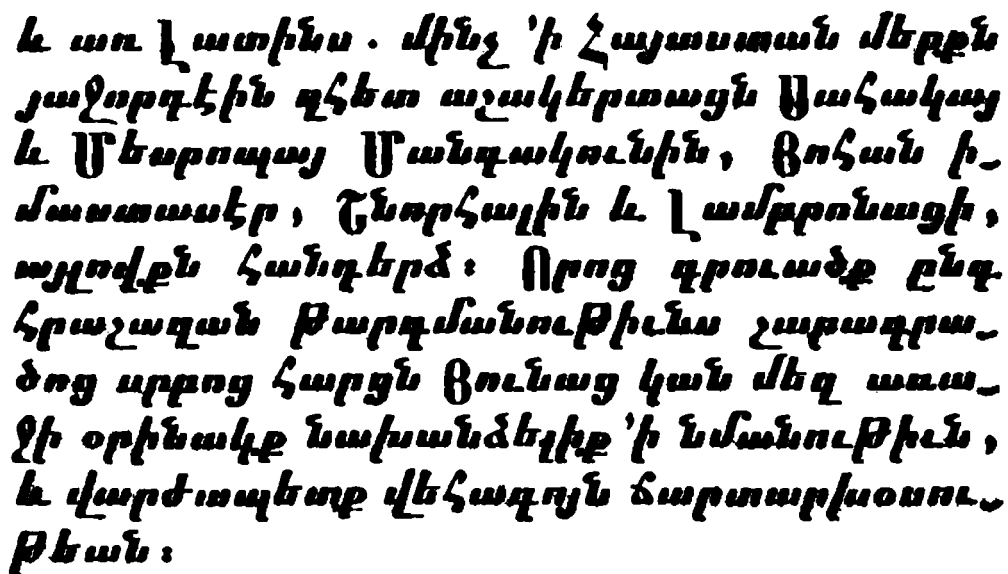 և առ Լատինս . մինչ 'ի Հայաստան մերքն
յաջորդէին զհետ աշակերտացն Սահակայ
և Մեսրոպայ Մանդակունին, Յոհան ի֊
մաստասէր, Շնորհալին և Լամբրոնացի,
այլովքն հանդերձ։ Որոց գրուածք ընդ
հրաշազան թարգմանութիւնս շարագրա֊
ծոց սրբոց հարցն Յունաց կան մեզ առա֊
ջի օրինակք նախանձելիք 'ի նմանութիւն,
և վարժապետք վեհագոյն ճարտարխօսու֊
թեան։